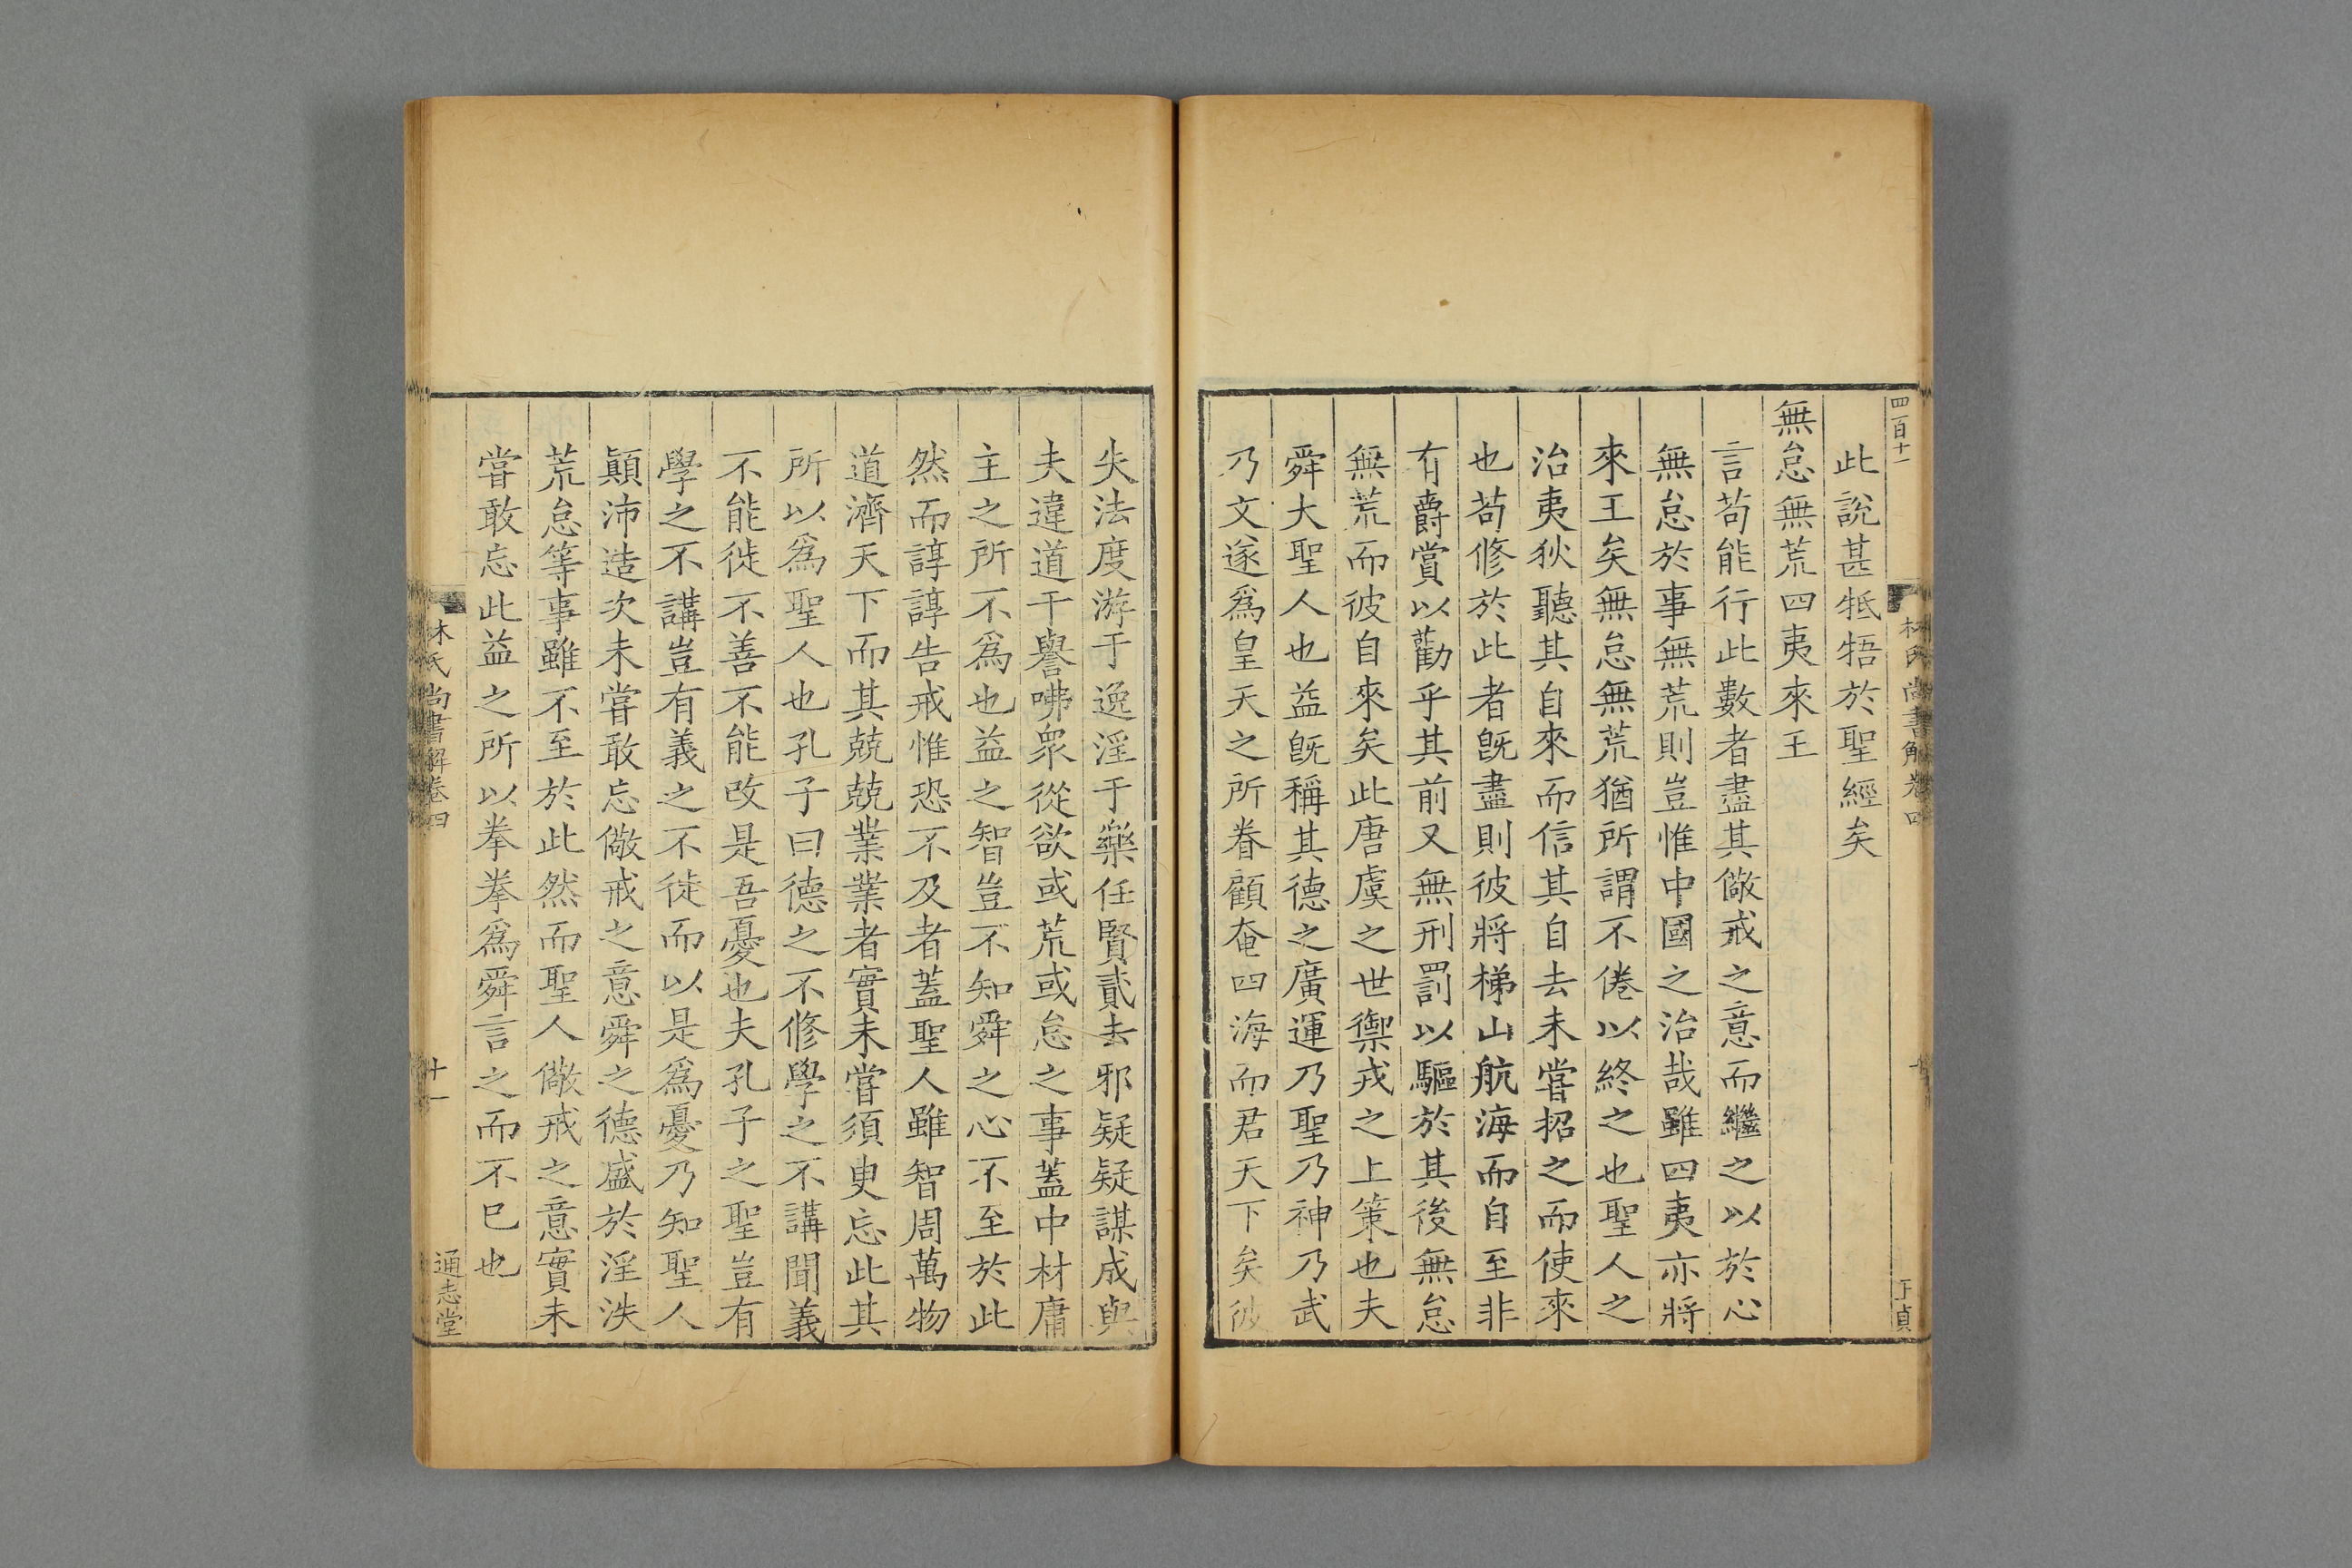 四百十一
此說甚牴牾於聖經矣
無怠無荒四夷來王
言苟能行此數者盡其儆戒之意而繼之以於心
無怠於事無荒則豈惟中國之治哉雖四夷亦將
來王矣無怠無荒猶所謂不倦以終之也聖人之
治夷狄聽其自來而信其自去未嘗招之而使來
也苟修於此者旣盡則彼將梯山航海而自至非
有爵賞以勸乎其前又無刑罰以驅於其後無怠
無荒而彼自來矣此唐虞之世禦戎之上策也夫
舜大聖人也益旣稱其德之廣運乃聖乃神乃武
乃文遂爲皇天之所眷顧奄四海而君天下矣彼
林氏尚書解卷四
十
失法度游于逸淫于樂任賢貳去邪疑疑謀成與
夫違道干譽咈衆從欲或荒或怠之事蓋中材庸
主之所不爲也益之智豈不知舜之心不至於此
然而諄諄告戒惟恐不及者蓋聖人雖智周萬物
道濟天下而其兢兢業業者實未嘗須臾忘此其
所以爲聖人也孔子曰德之不修學之不講聞義
不能徙不善不能改是吾憂也夫孔子之聖豈有
學之不講豈有義之不徙而以是爲憂乃知聖人
顚沛造次未嘗敢忘儆戒之意舜之德盛於淫泆
荒怠等事雖不至於此然而聖人儆戒之意實未
嘗敢忘此益之所以拳拳爲舜言之而不已也
林氏尚書解卷四
十一
通志堂